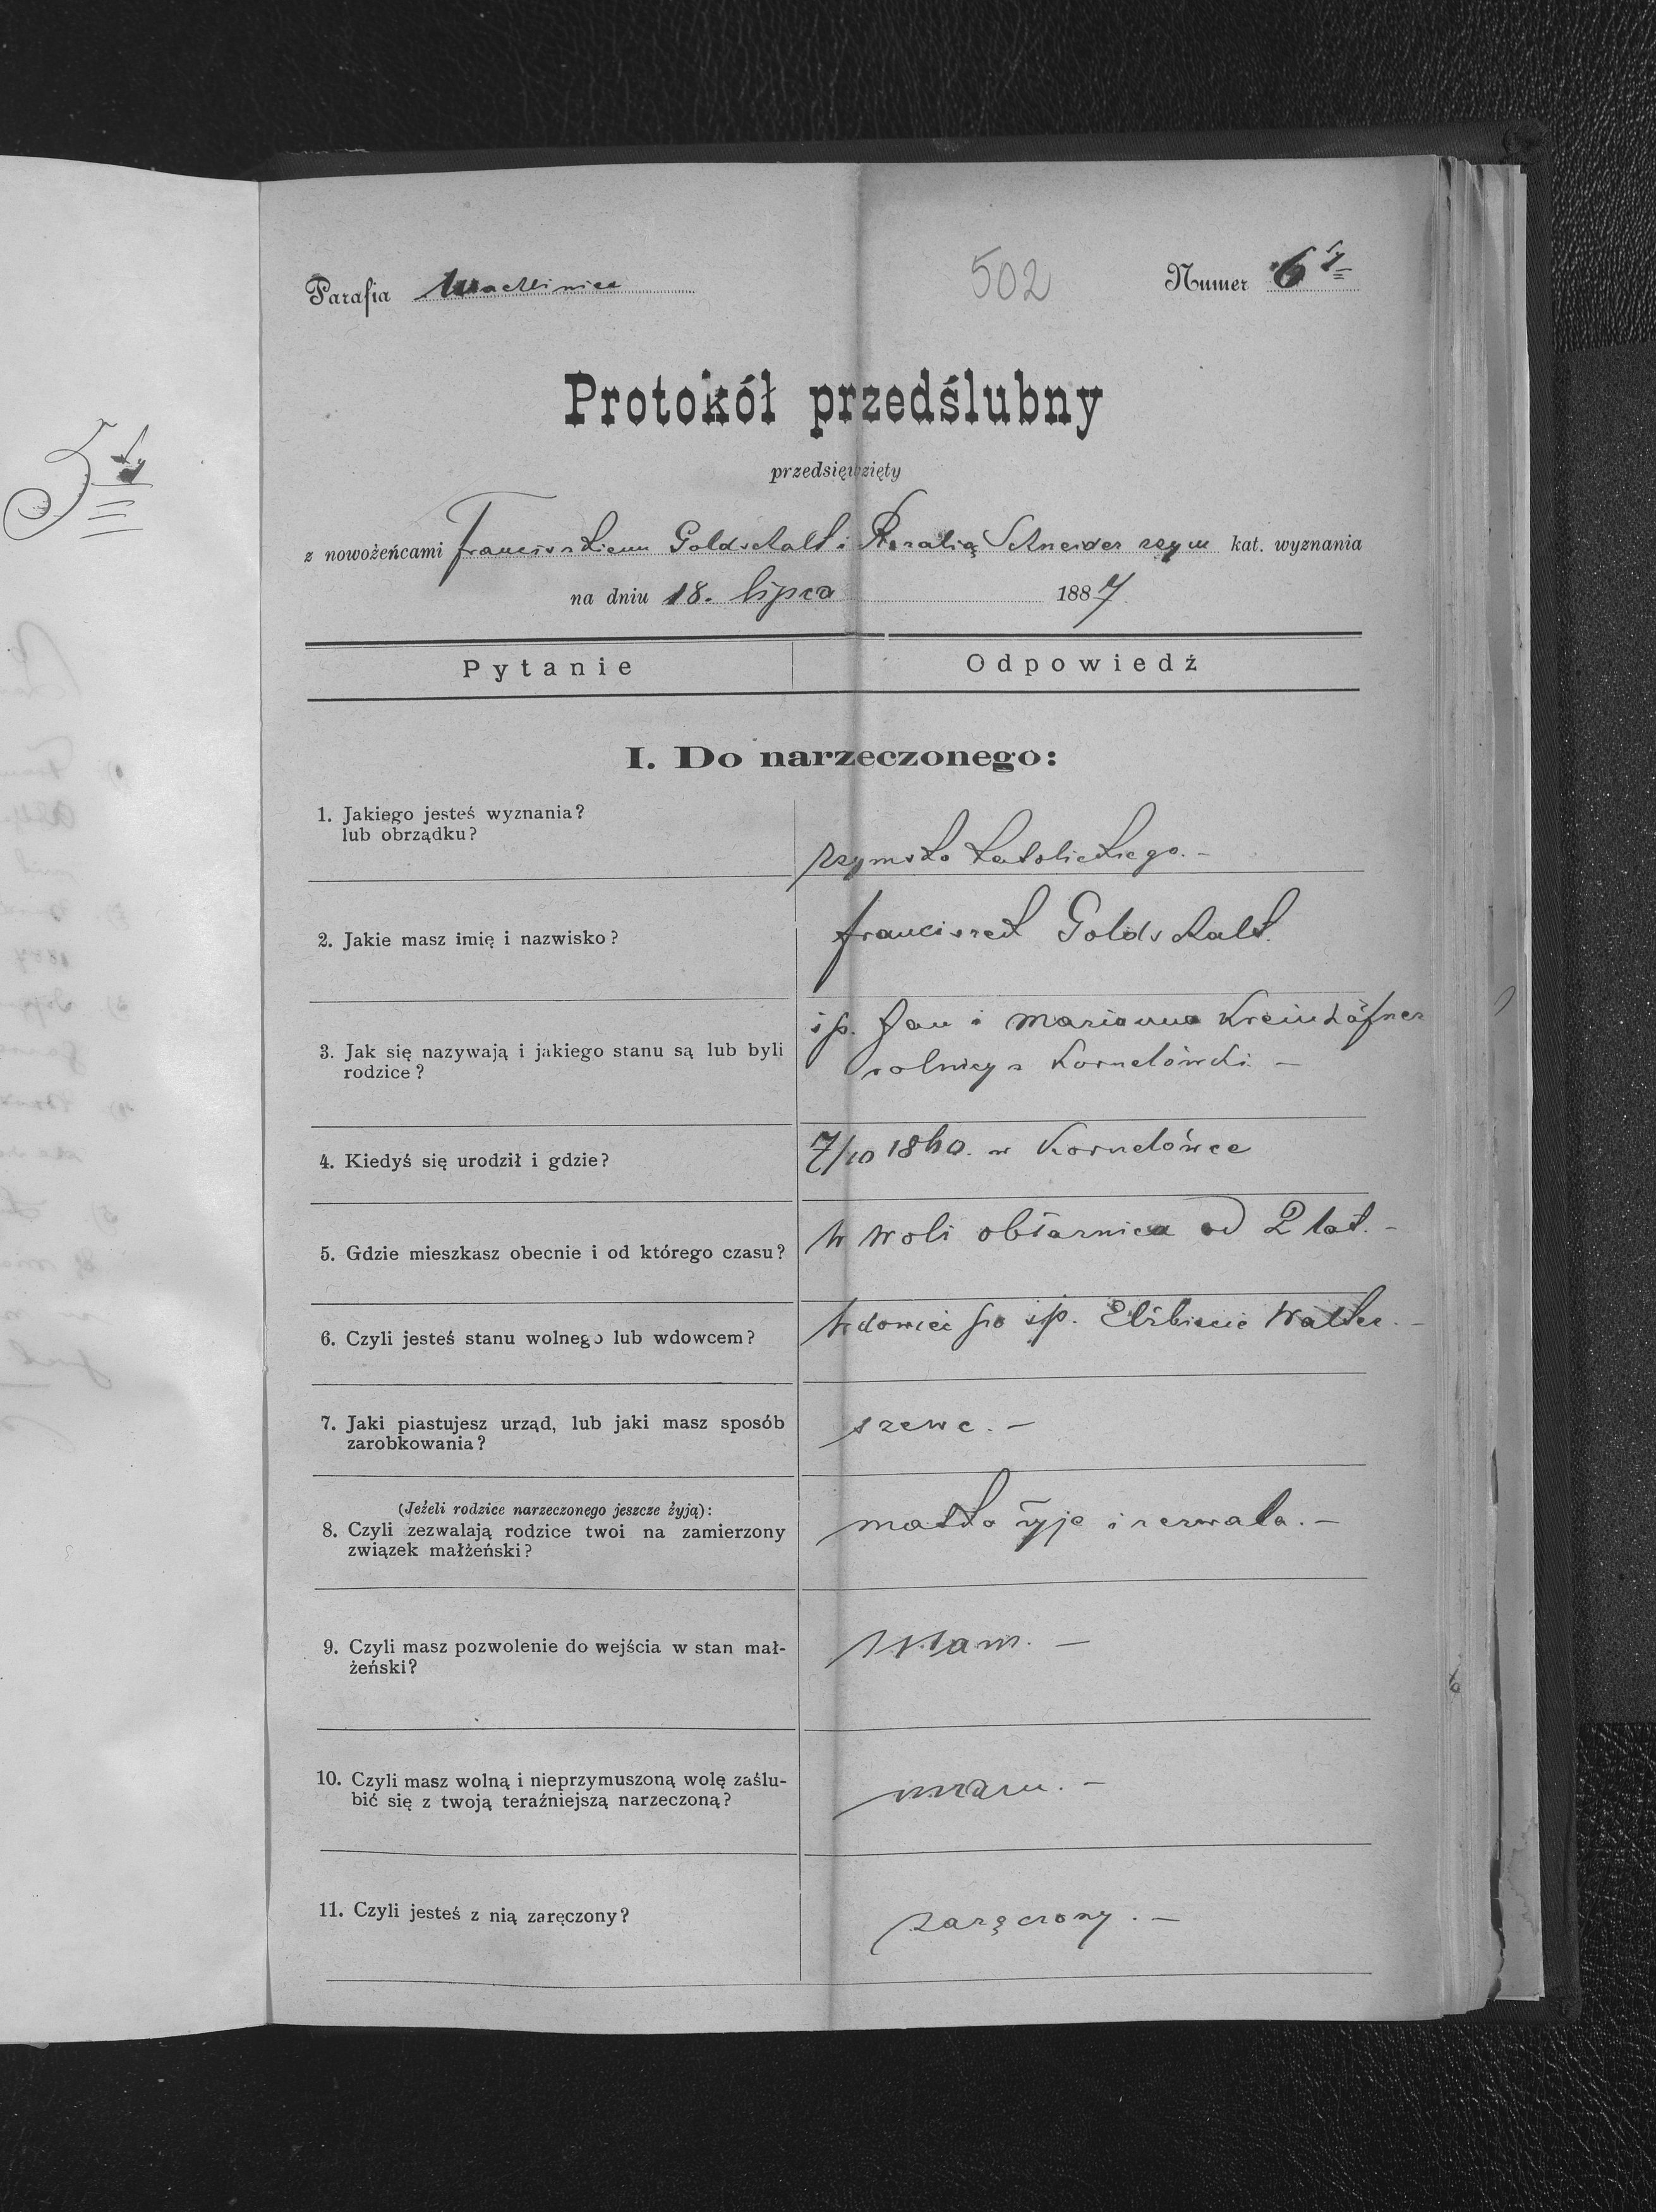 Parafia Machliniec 502 Numer 6ty
Protokół przedślubny
przedsięwzięty
z nowożeńcami Franciszkiem Goldschalt i Rozalią Schneider rzym kat. wyznania
na dniu 18. lipca 1887
Pytanie Odpowiedź
I. Do narzeczonego:
1. Jakiego jesteś wyznania?
lub obrządku?
rzymsko katolickiego. –
2. Jakie masz imię i nazwisko?
Franciszek Goldschalt.
3. Jak się nazywają i jakiego stanu są lub byli
rodzice?
śp. Jan i Marianna
rolnicy z Kornelówki –
4. Kiedyś się urodził i gdzie?
7/10 1860. w Kornelówce
5. Gdzie mieszkasz obecnie i od którego czasu?
w woli obłaznica od 2 lat. –
6. Czyli jesteś stanu wolnego lub wdowcem?
wdowiec po śp. Elżbiecie Walter. –
7. Jaki piastujesz urząd, lub jaki masz sposób
zarobkowania?
szewc. –
(Jeżeli rodzice narzeczonego jeszcze żyją):
8. Czyli zezwalają rodzice twoi na zamierzony
związek małżeński?
matka żyje i zezwala. –
9. Czyli masz pozwolenie do wejścia w stan mał-
żeński?
mam. –
10. Czyli masz wolną i nieprzymuszoną wolę zaślu-
bić się z twoją teraźniejszą narzeczoną?
mam. –
11. Czyli jesteś z nią zaręczony?
zaręczony. –
5ty